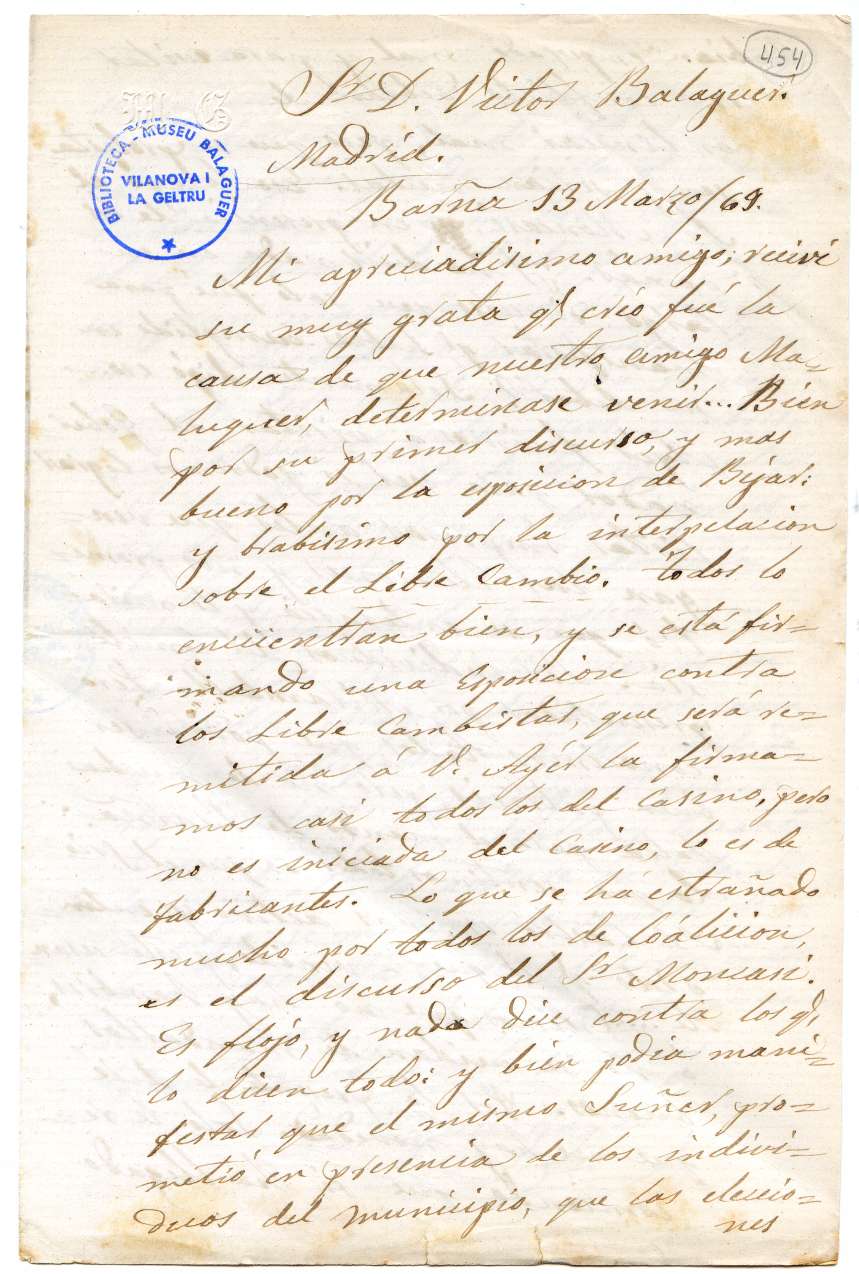 454
Sr D. Victor Balaguer.
Madrid.
BIBLIOTECA - MUSEU BALAGUER
VILANOVA I
LA GELTRU
Barña 13 Marzo/69.
Mi apreciadisimo amigo; recivi
su muy grata q!, créo fué la
causa de que nuestro amigo Ma-
luquer, determinase venir... Bien
por su primer discurso, y mas
bueno por la esposicion de Bejar:
y brabisimo por la interpelacion
sobre el Libre Cambio. Todos lo
encuentran bien, y se está fir-
mando una Esposicion contra
los Libre Cambistas, que será re-
mitida á V. Ayér la firma-
mos casi todos los del Casino, pero
no es iniciada del Casino, lo es de
fabricantes. Lo que se há estrañado
mucho por todos los de Coálicion,
es el discurso del Sr Moncasi.
Es flójo, y nada dice contra los q!,
lo dicen todo: y bien podia mani-
festar que el mismo Suñer, pro-
metió en presencia de los indivi-
duos del municipio, que las eleccio-
nes